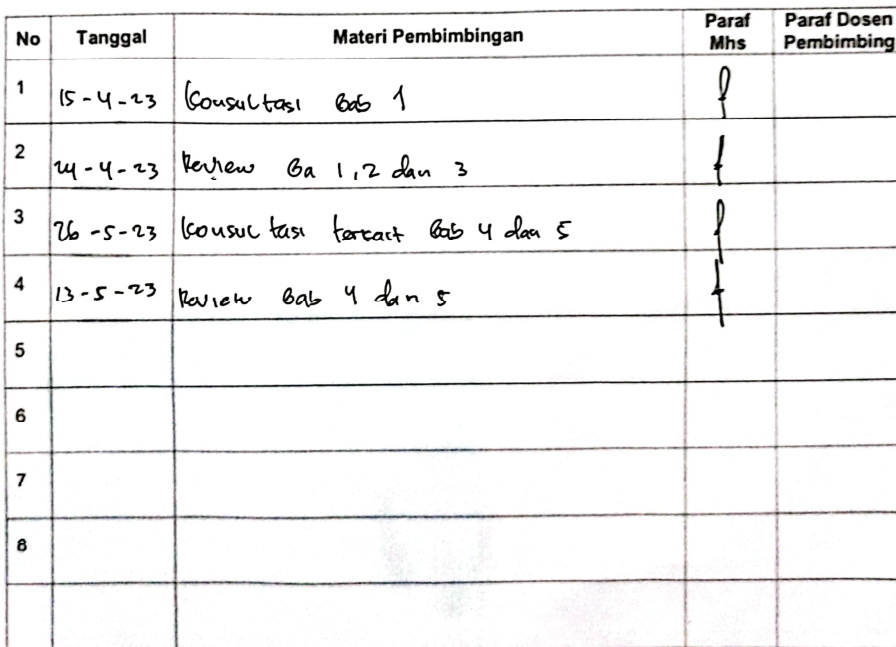 No Tanggal Materi Pembimbingan Paraf Mhs Paraf Dosen Pembimbing
1 15-4-23 Konsultasi Bab 1
2 24-4-23 Review Ba 1,2 dan 3
3 26-5-23 Konsultasi terkait Bab 4 dan 5
4 13-5-23 Review Bab 4 dan 5
5
6
7
8